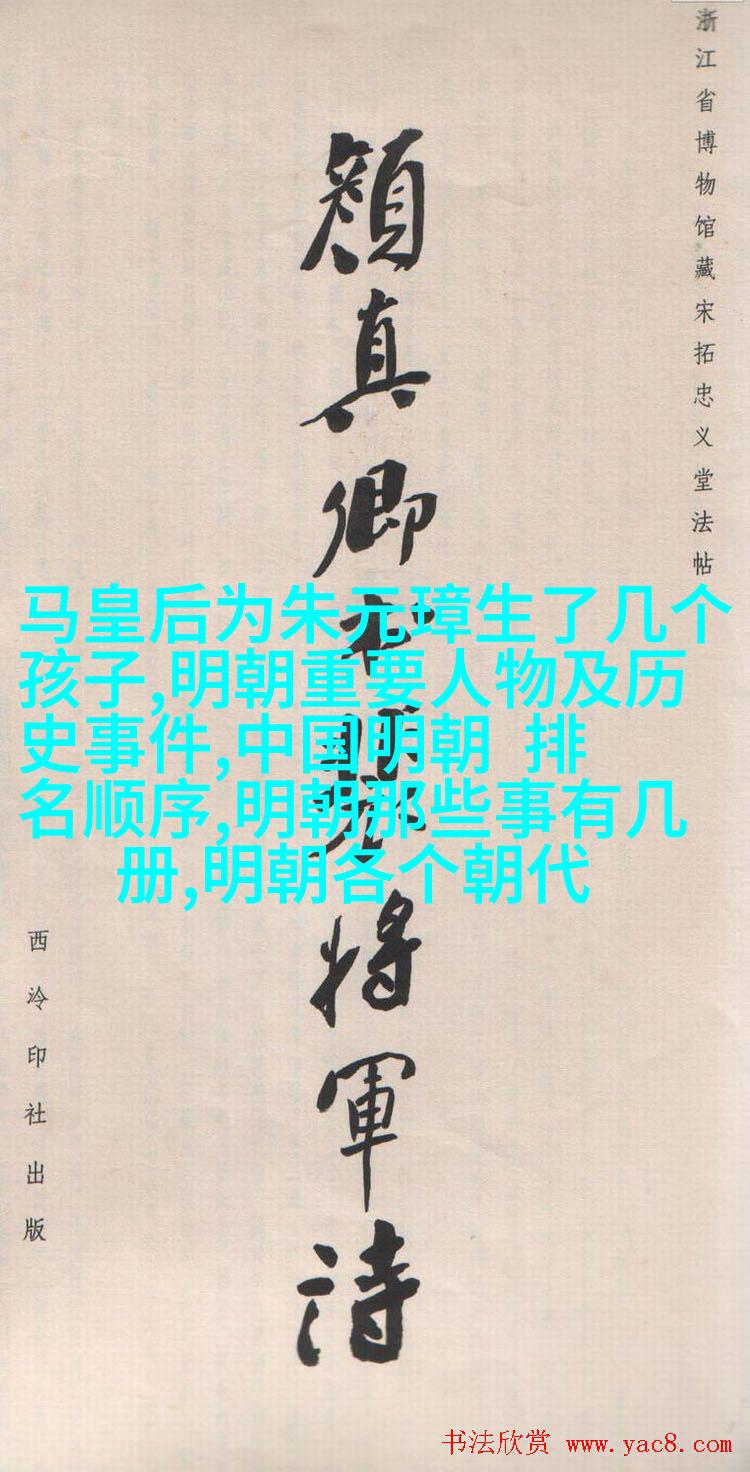 浙江省博物馆藏宋拓忠义堂法帖
顏真卿裴将軍诗
马皇后为朱元璋生了几个
孩子,明朝重要人物及历
史事件,中国明朝 排
名顺序,明朝那些事有几
册,明朝各个朝代
西泠印社出版
书法欣赏 www.yac8.com